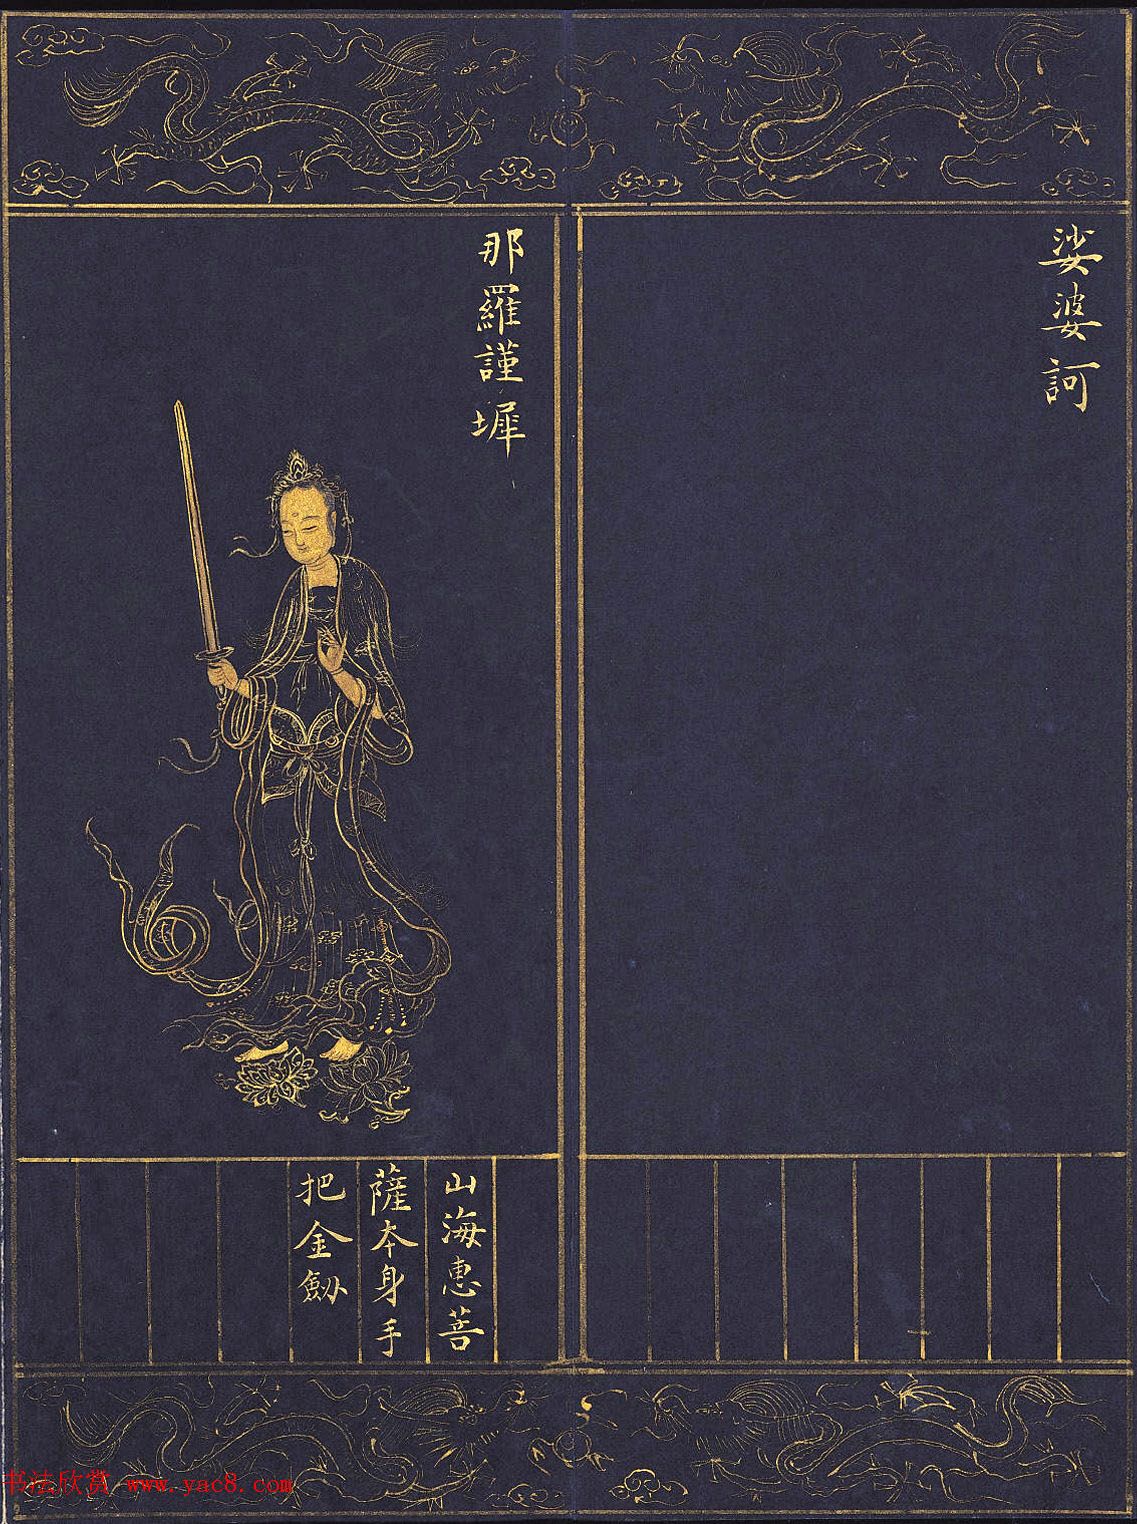 娑婆訶
那羅謹墀
山海惠菩
薩本身手
把金劔
书法欣赏 www.yac8.com